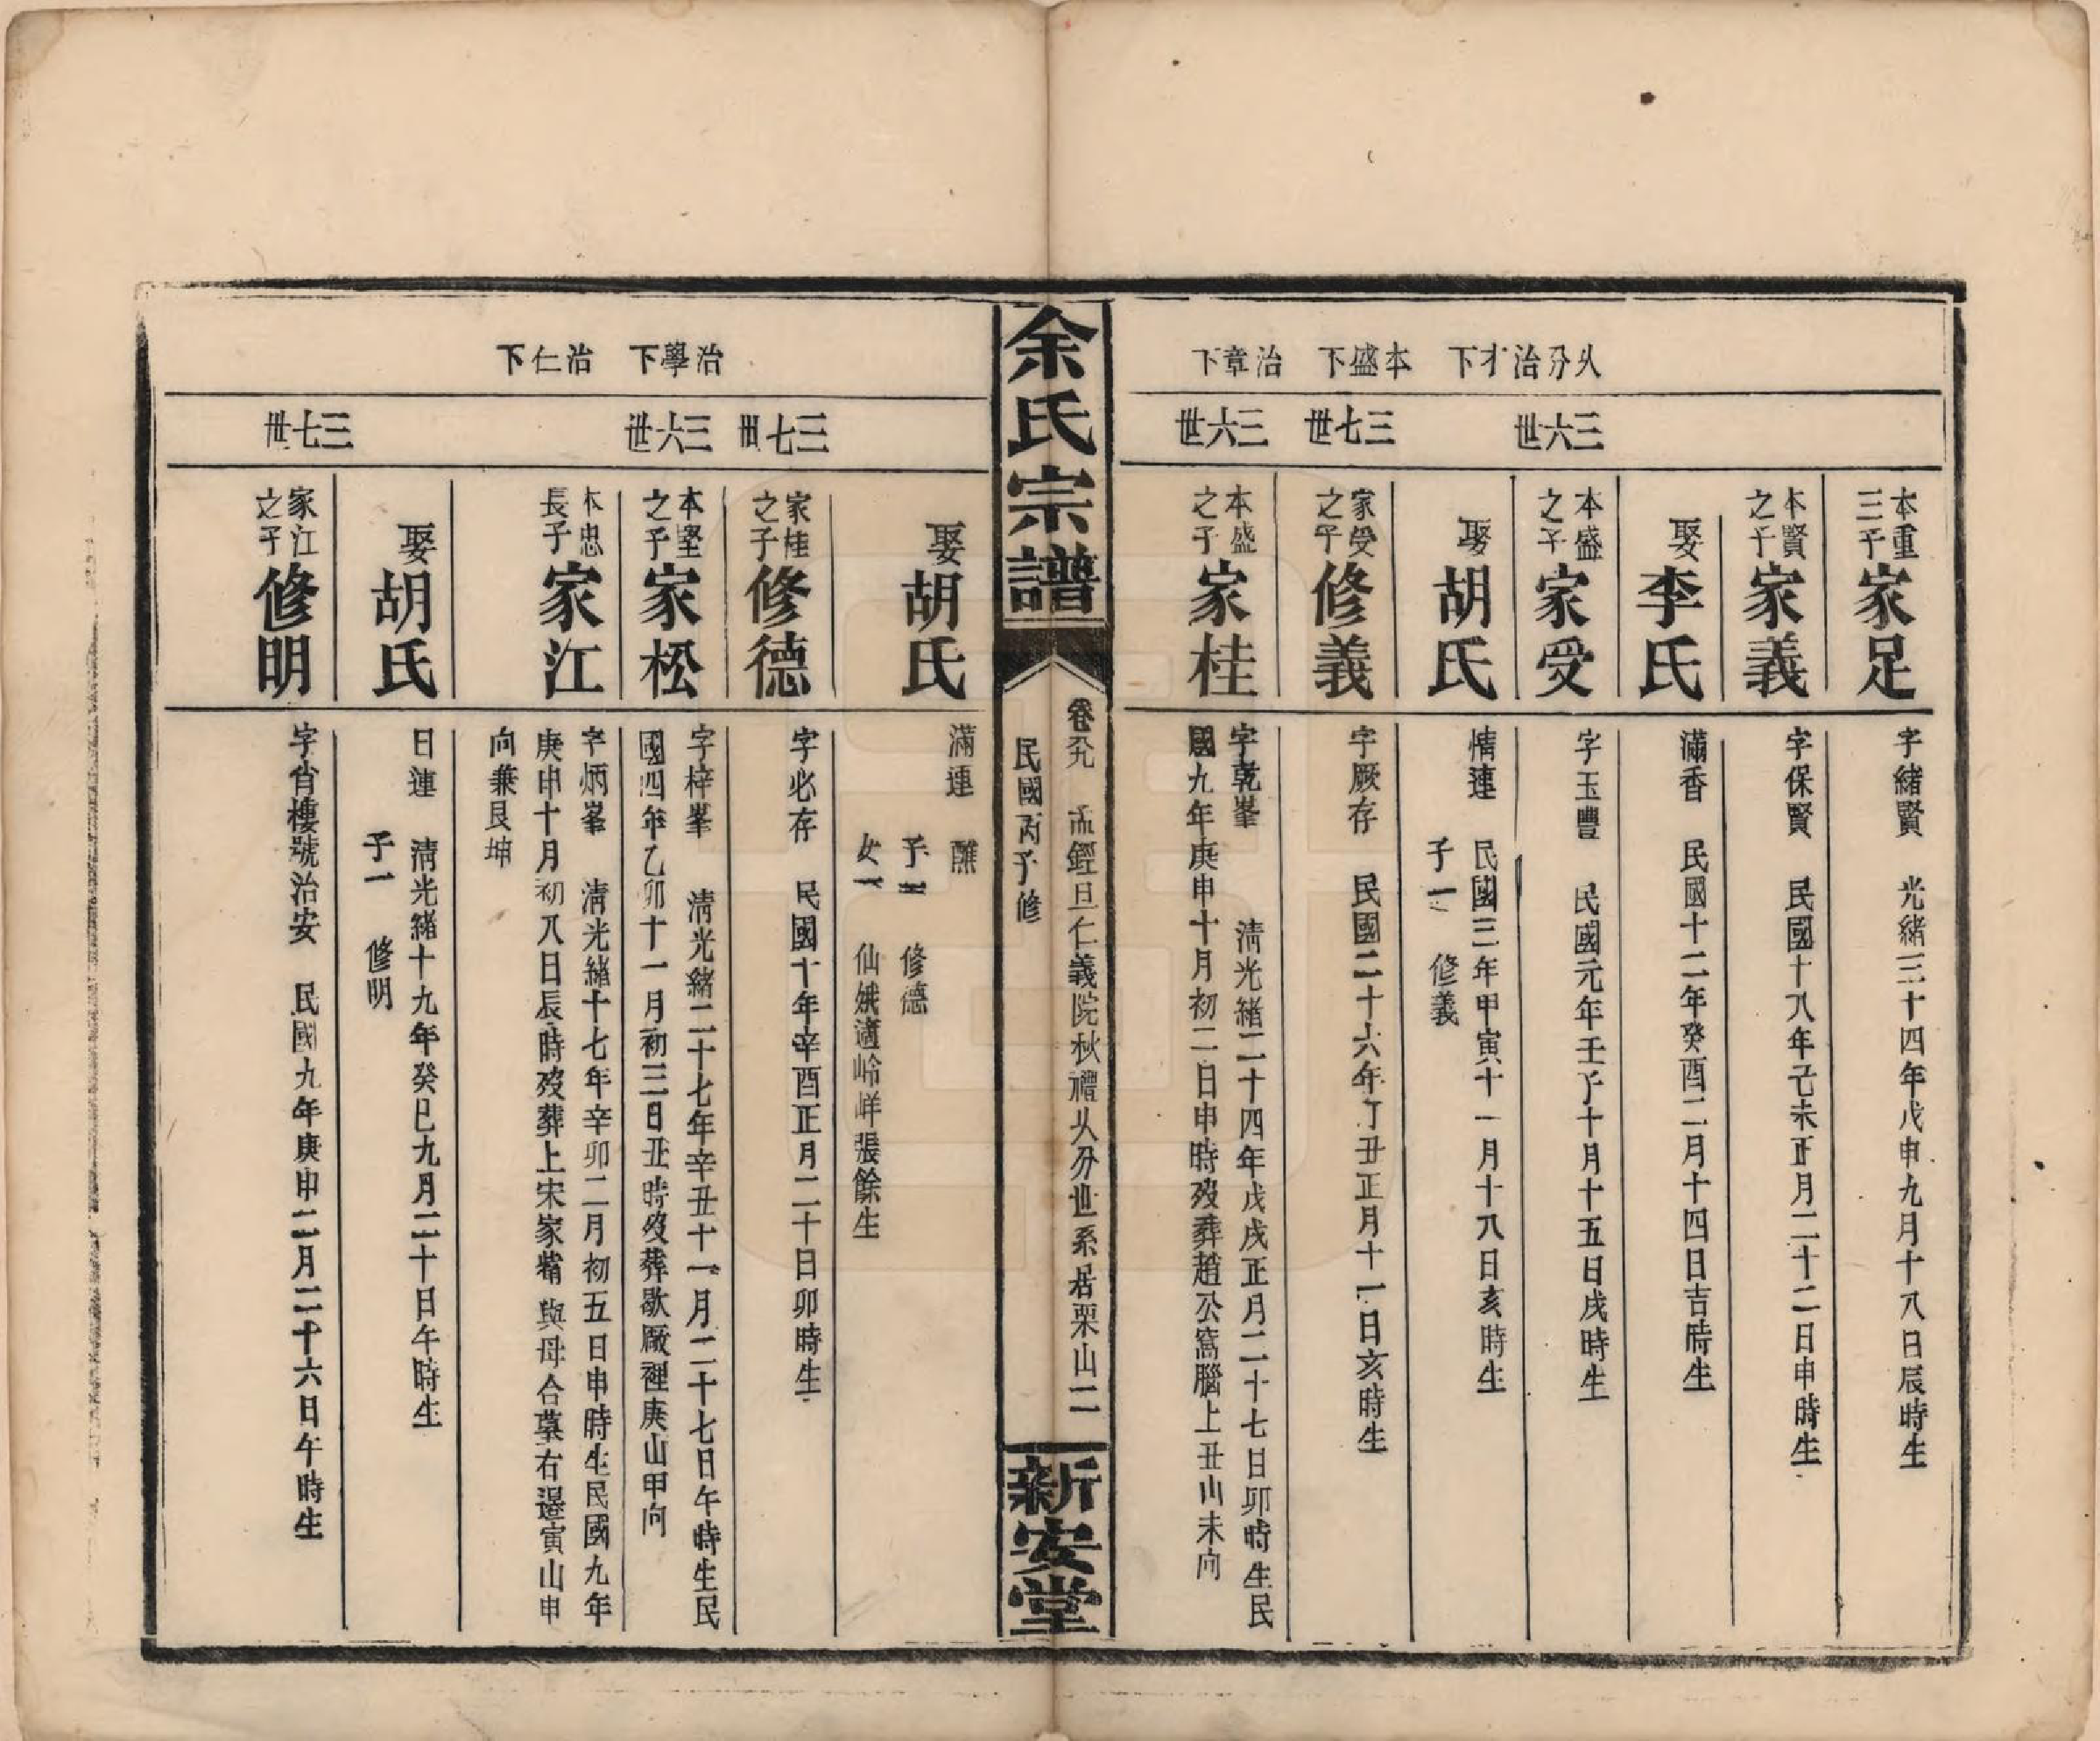 乆分治才下　本盛下　治章下
三六世　三七世　三六世
本重三子家足
字緒賢　光緒三十四年戊申九月十八日辰時生
本賢之子家義
字保賢　民國十八年己未正月二十二日申時生
娶李氏
滿香　民國十二年癸酉二月十四日吉時生
本盛之子家受
字玉豐　民國元年壬子十月十五日戌時生
娶胡氏
情連　民國三年甲寅十一月十八日亥時生
子一　修義
家受之子修義
字厥存　民國二十六年丁丑正月十一日亥時生
本盛之子家桂
字乾峯　清光緒二十四年戊戌正月二十七日卯時生民
國九年庚申十月初二日申時歿葬趙公窩腦上丑山未向
余氏宗譜
卷　孟經旦仁義院秋禮乆分世系居栗山二
民國丙子修
新安堂
治學下　治仁下
三七世　三六世　三七世
娶胡氏
滿連　醮
子一　修德
女一　仙娥適岭垟張餘生
家桂之子修德
字必存　民國十年辛酉正月二十日卯時生
本堅之子家松
字梓峯　清光緒二十七年辛丑十一月二十七日午時生民
國四年乙卯十一月初三日丑時歿葬歇廠裡庚山甲向
本忠長子家江
字炳峯　清光緒十七年辛卯二月初五日申時生民國九年
庚申十月初八日辰時歿葬上宋家觜與母合墓右邊寅山申
向兼艮坤
娶胡氏
日連　清光緒十九年癸巳九月二十日午時生
子一　修明
家江之子修明
字肯樓號治安　民國九年庚申二月二十六日午時生